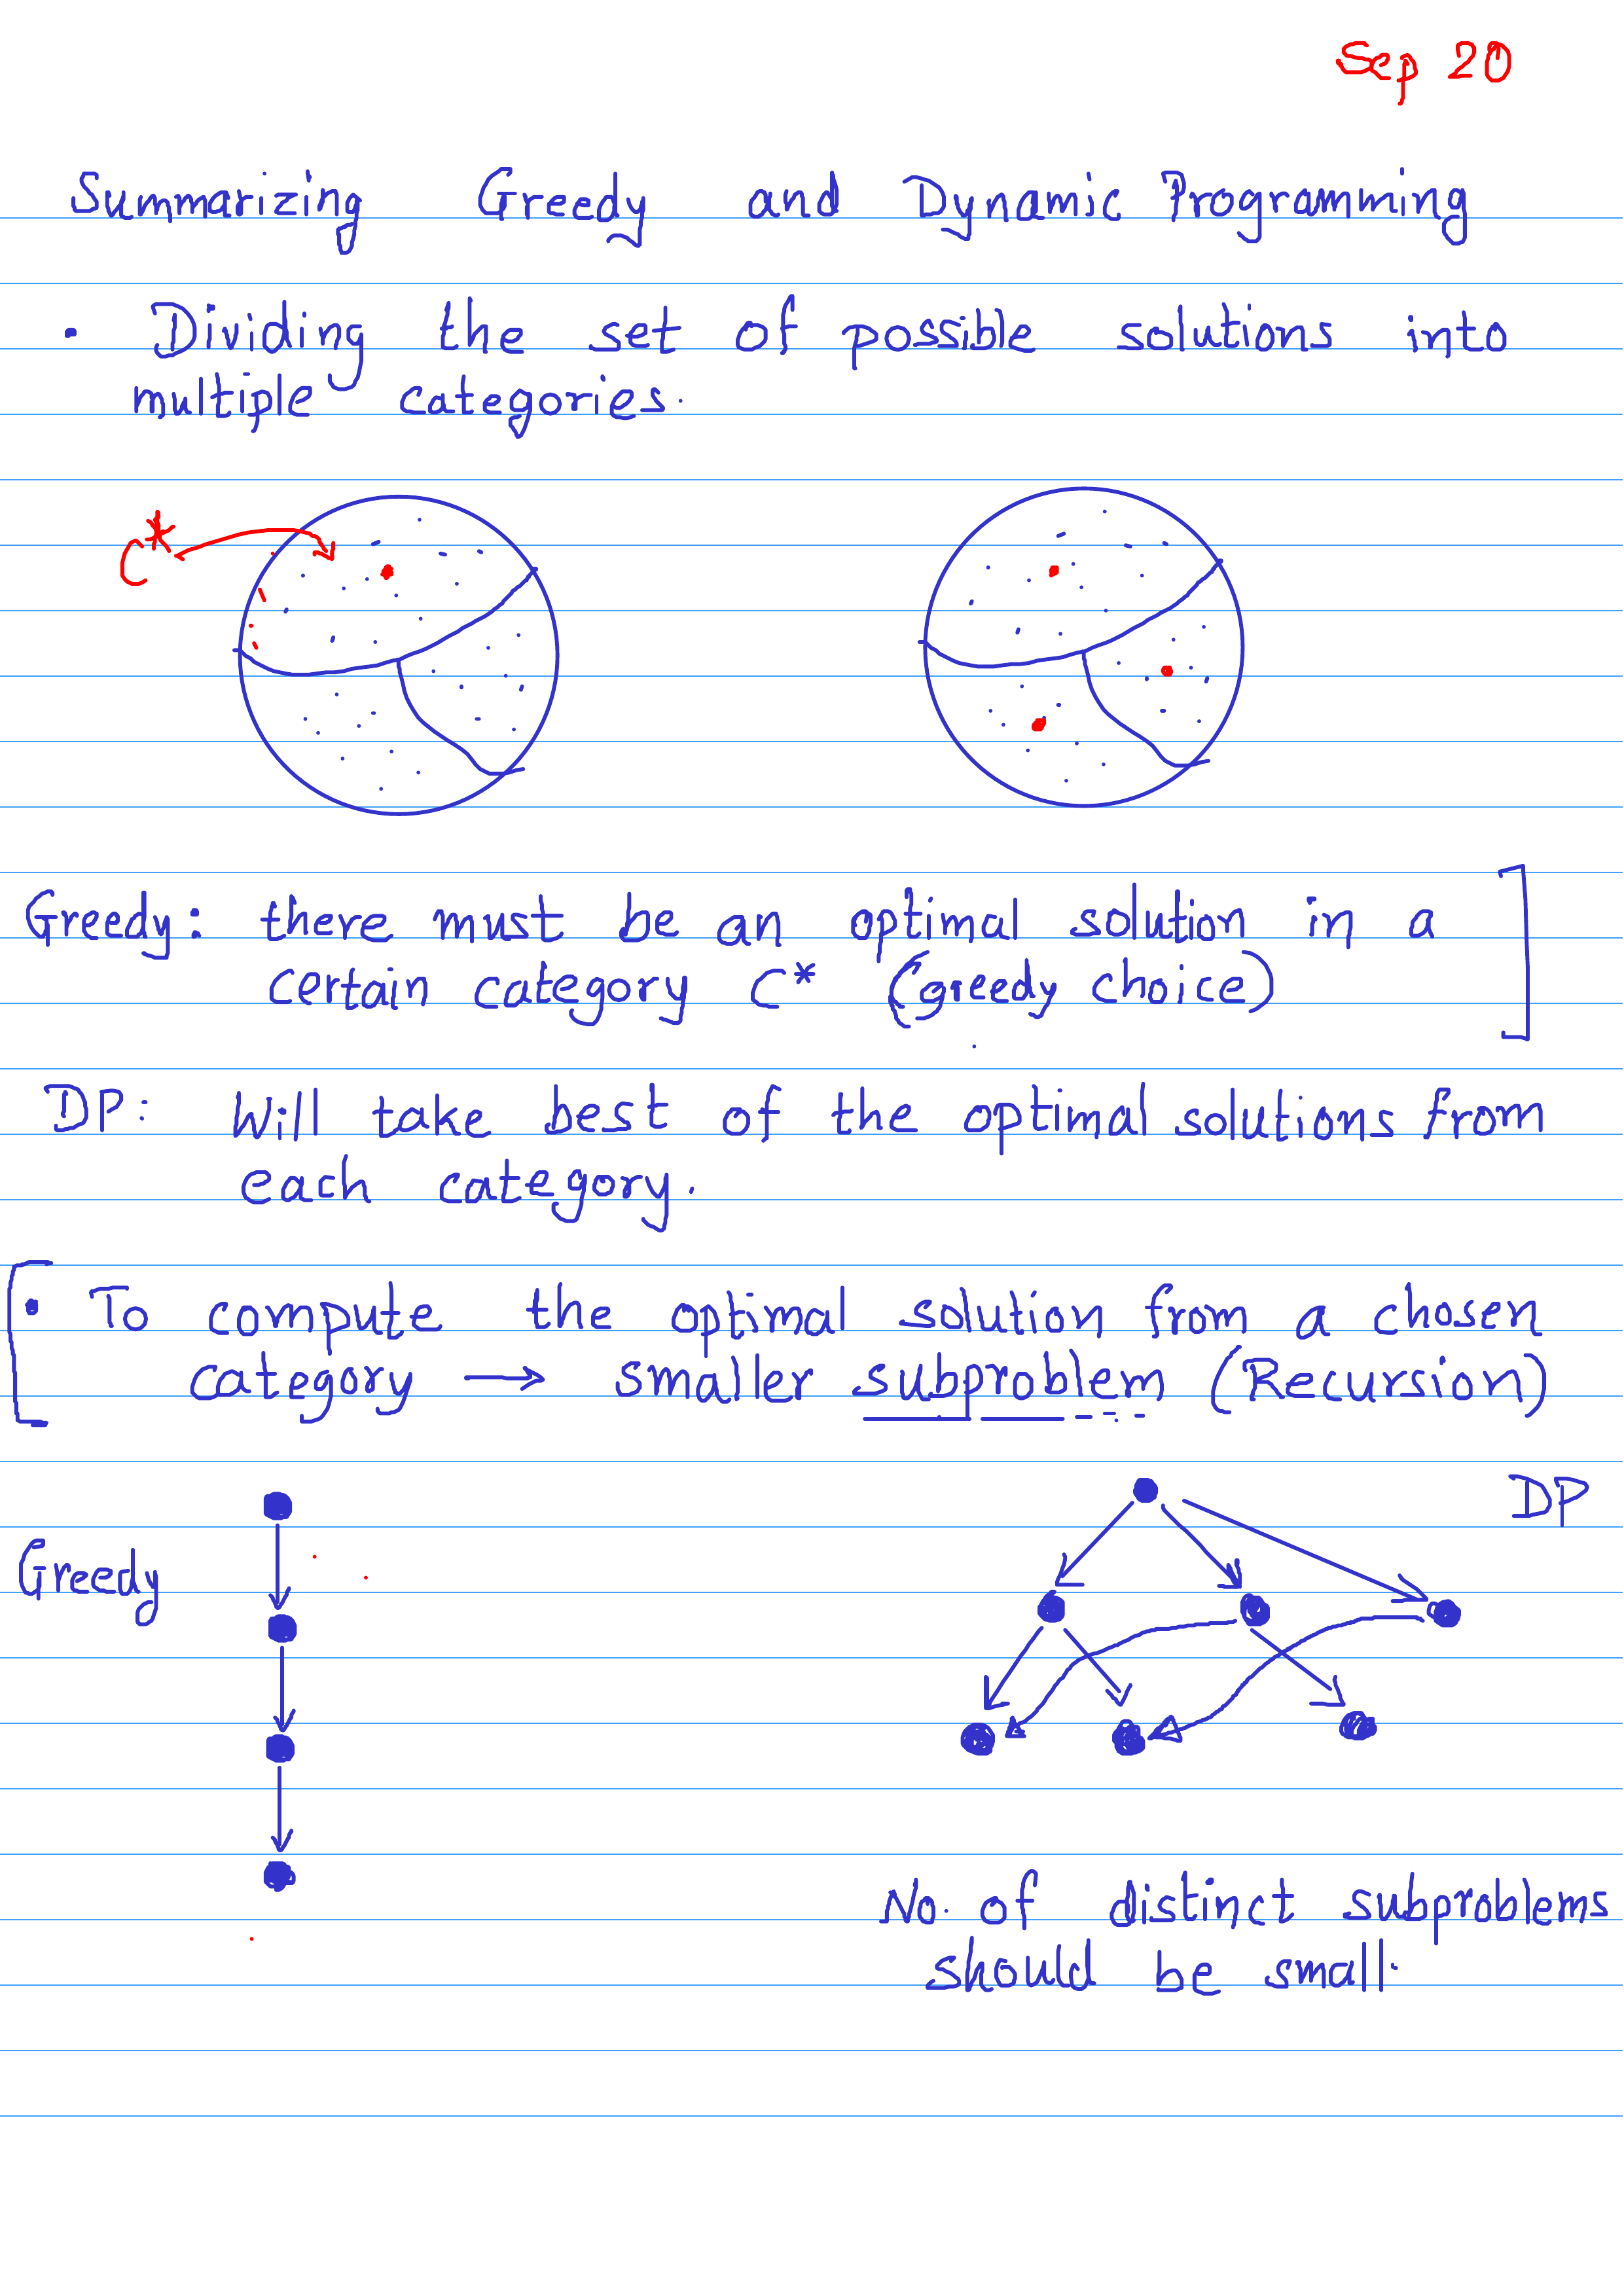 Sep 20
Summarizing Greedy and Dynamic Programming
• Dividing the set of possible solutions into
multiple categories.
C*
Greedy: there must be an optimal solution in a
certain category C* (greedy choice)
DP: Will take best of the optimal solutions from
each category.
• To compute the optimal solution from a chosen
category → smaller subproblem (Recursion)
DP
Greedy
No. of distinct subproblems
should be small.